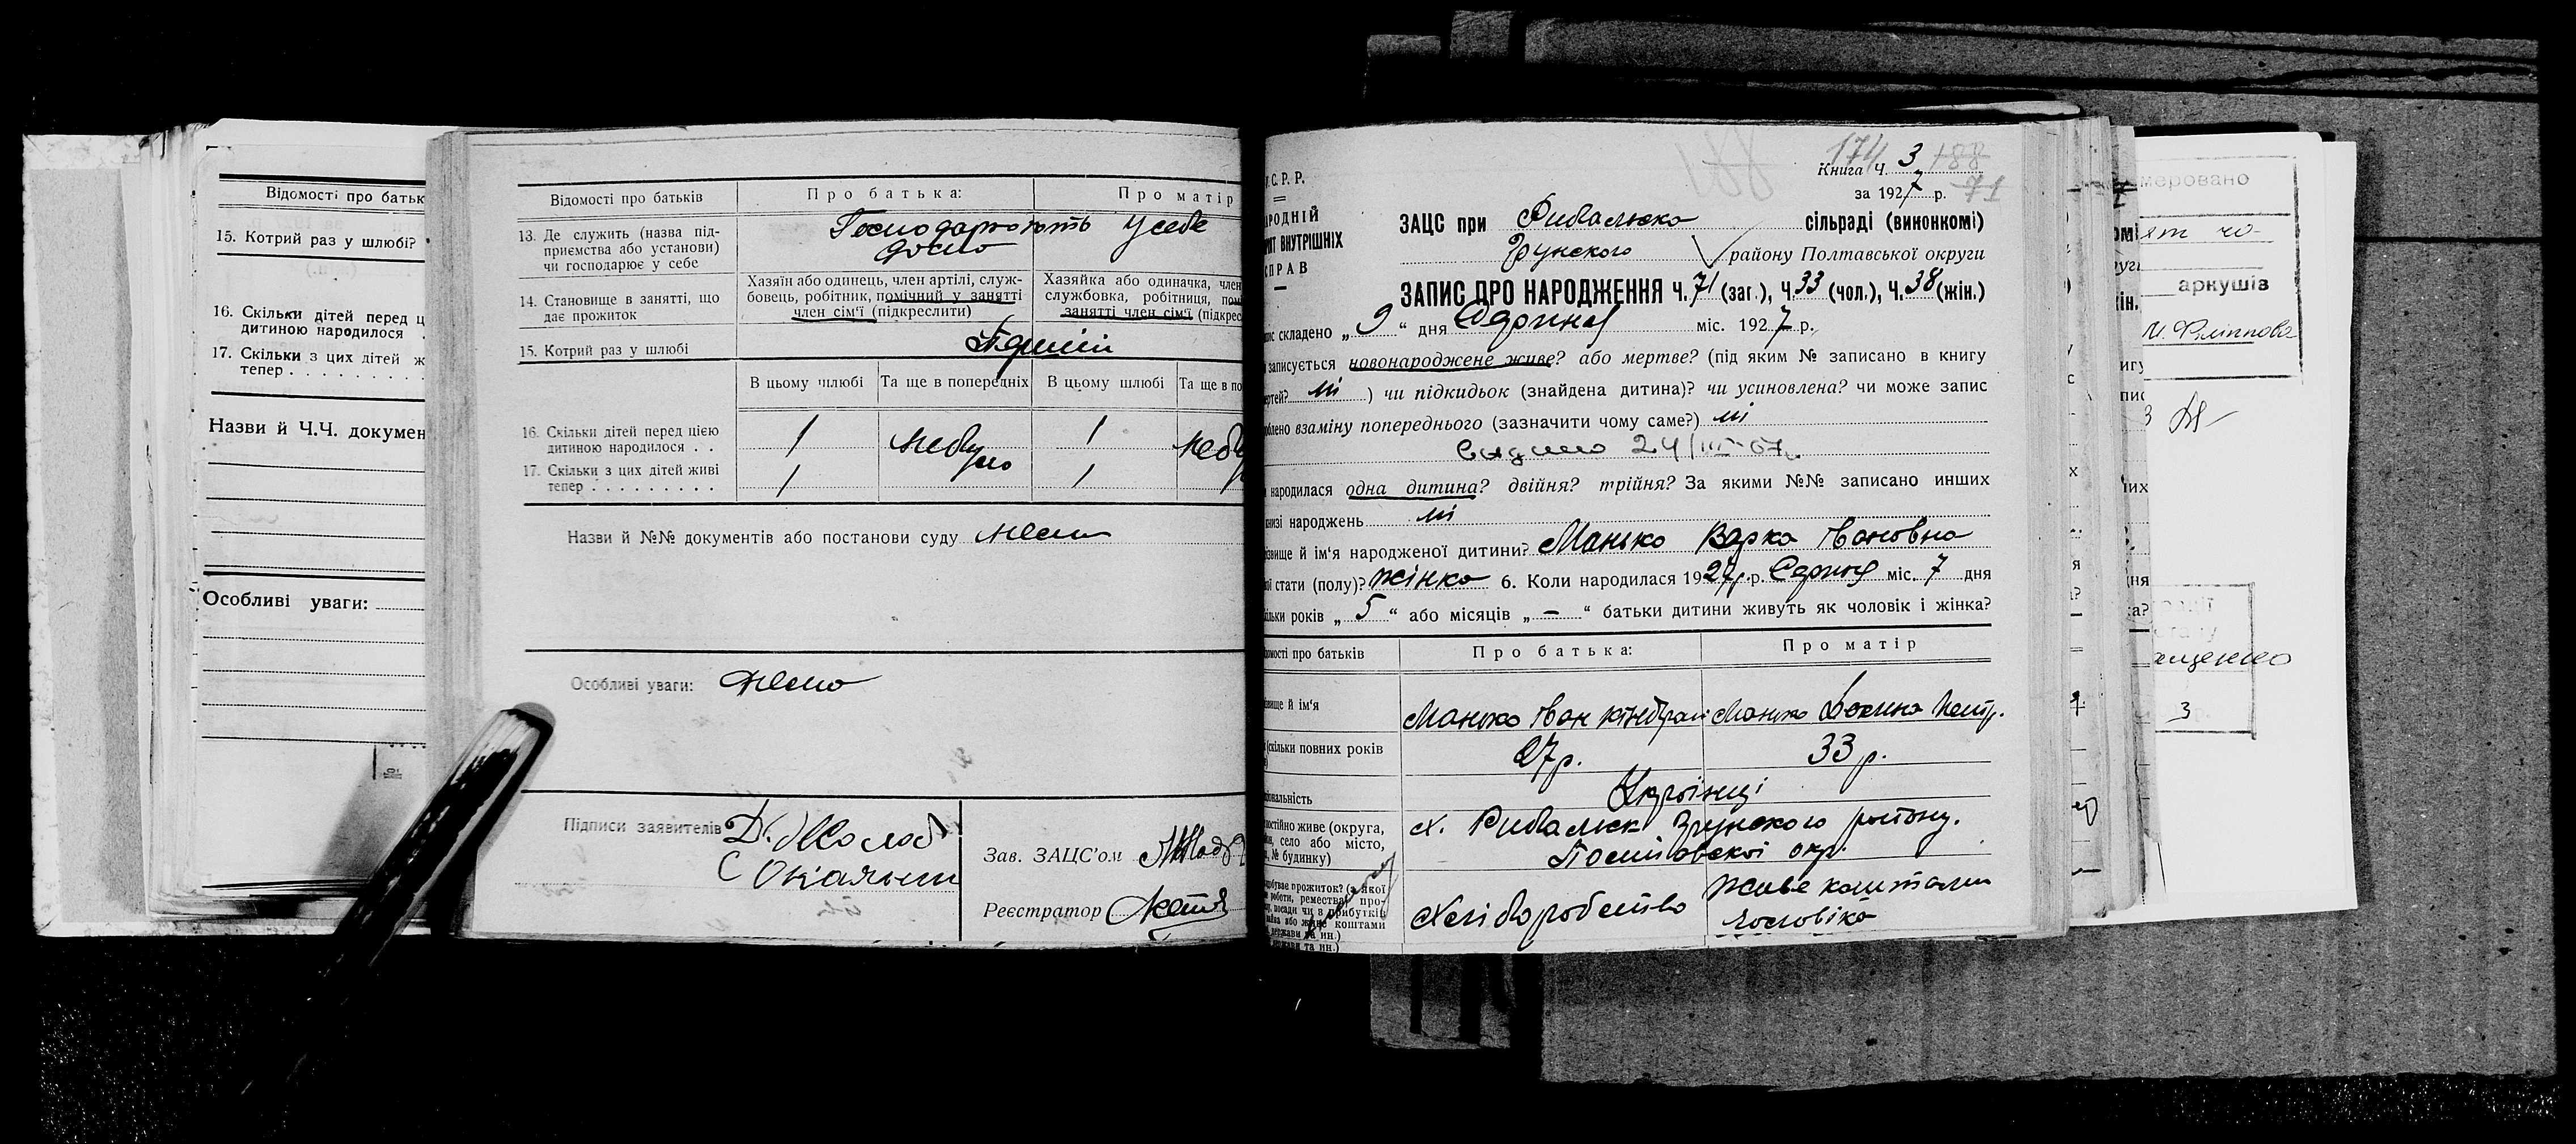 Відомості про батьк
15. Котрий раз у шлюбі?
16. Скільки дітей перед ц
дитиною народилося
17. Скільки з цих дітей ж
тепер
Назви й Ч.Ч. докумен
Особливі уваги:
Відомості про батьків
Про батька:
Про матір
13. Де служить (назва під-
приємства або установи)
чи господарює у себе
Господарюють у себе
14. Становище в занятті, що
дає прожиток
Хазяїн або одинець, член артілі, служ-
бовець, робітник, помічний у занятті
член сім'ї (підкреслити)
Хазяйка або одиначка, член
службовка, робітниця, пом
занятті член сім'ї (підкрес
15. Котрий раз у шлюбі
Перший
В цьому шлюбі
Та ще в попередніх
В цьому шлюбі
Та ще в по
16. Скільки дітей перед цією
дитиною народилося . .
1
небуло
1
небу
17. Скільки з цих дітей живі
тепер
1
1
Назви й №№ документів або постанови суду нема
Особливі уваги: нема
Підписи заявителів
Зав. ЗАЦС'ом
Реєстратор
У.С.Р.Р.
АРОДНІЙ
ВНУТРІШНІХ
СПРАВ
174 188
188
71
Книга Ч. 3
за 1927 р.
ЗАЦС при Рибальско сільраді (виконкомі)
Грунського району Полтавської округи
ЗАПИС ПРО НАРОДЖЕННЯ Ч. 71 (заг.), Ч. 33 (чол.), Ч. 38 (жін.)
складено „ 9 “ дня Серпня міс. 1927 р.
записується новонароджене живе? або мертве? (під яким № записано в книгу
мертей? ні ) чи підкидьок (знайдена дитина)? чи усиновлена? чи може запис
облено взаміну попереднього (зазначити чому саме?) ні
24/III-67
народилася одна дитина? двійня? трійня? За якими №№ записано инших
книзі народжень ні
ізвище й ім'я народженої дитини? Манько Варка Івановна
стати (полу)? жінка 6. Коли народилася 1927 р. Серпня міс. 7 дня
кільки років „ 5 “ або місяців „ – “ батьки дитини живуть як чоловік і жінка?
домості про батьків
Про батька:
Про матір
звище й ім'я
Манько Іван
Манько Векина Петр.
(скільки повних років
27 р.
33 р.
ціональність
Українці
постійно живе (округа,
село або місто,
№ будинку)
х. Рибальск Грунского району.
Полтавскої окр.
Хліборобство
живе коштами
чоловіка
меровано
аркушів